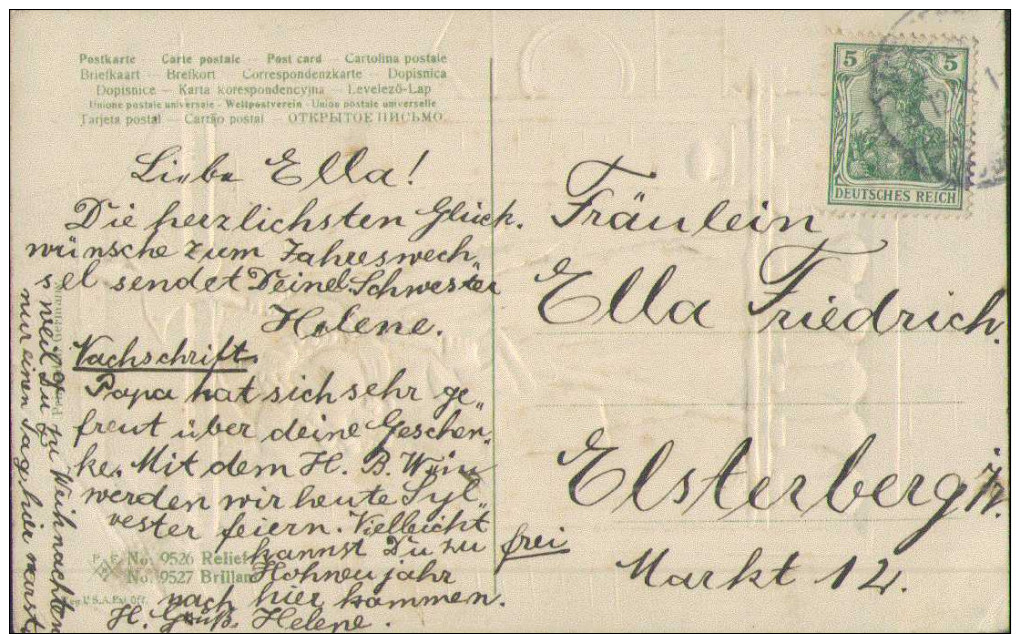 Postkarte — Carte postale — Post card — Cartolina postale
Briefkaart — Brefkort — Correspondenzkarte — Dopisnica
Dopisnice — Karta korespondencyjna — Levelező-Lap
Unione postale universale - Weltpostverein - Union postale universelle
Tarjeta postal — Cartão postal — ОТКРЫТОЕ ПИСЬМО.
5 5
DEUTSCHES REICH
Liebe Ella!
Die herzlichsten Glück-
wünsche zum Jahreswech-
sel sendet Deine Schwester
Helene.
Nachschrift.
Papa hat sich sehr ge-
freut über deine Geschen-
ke. Mit dem H. B. Wein
werden wir heute Syl-
vester feiern. Vielleicht
kannst Du zu
Hohneujahr
nach hier kommen.
H. Gruß. Helene.
weil Du zu Weihnachten
nur einen Tag hier warst.
Fräulein
Ella Friedrich.
Elsterberg i/V.
frei
Markt 12.
P. F. B.
No. 9526 Relief
No. 9527 Brillant